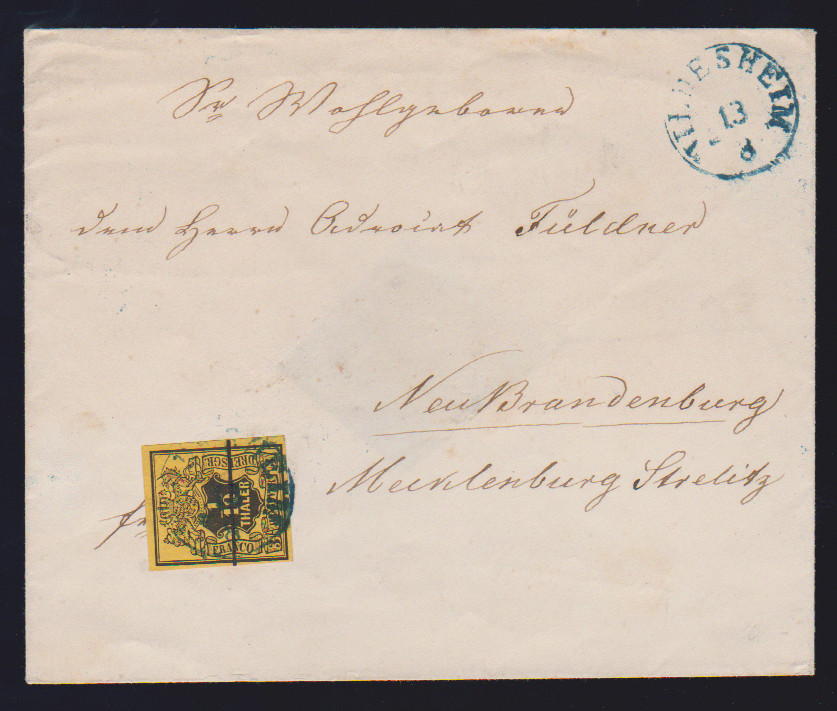 HILDESHEIM
13
8
Sr Wohlgeboren
dem Herrn Advocat Füldner
NeuBrandenburg
Mecklenburg Strelitz
fr
DREI SGR.
1
10
THALER
FRANCO